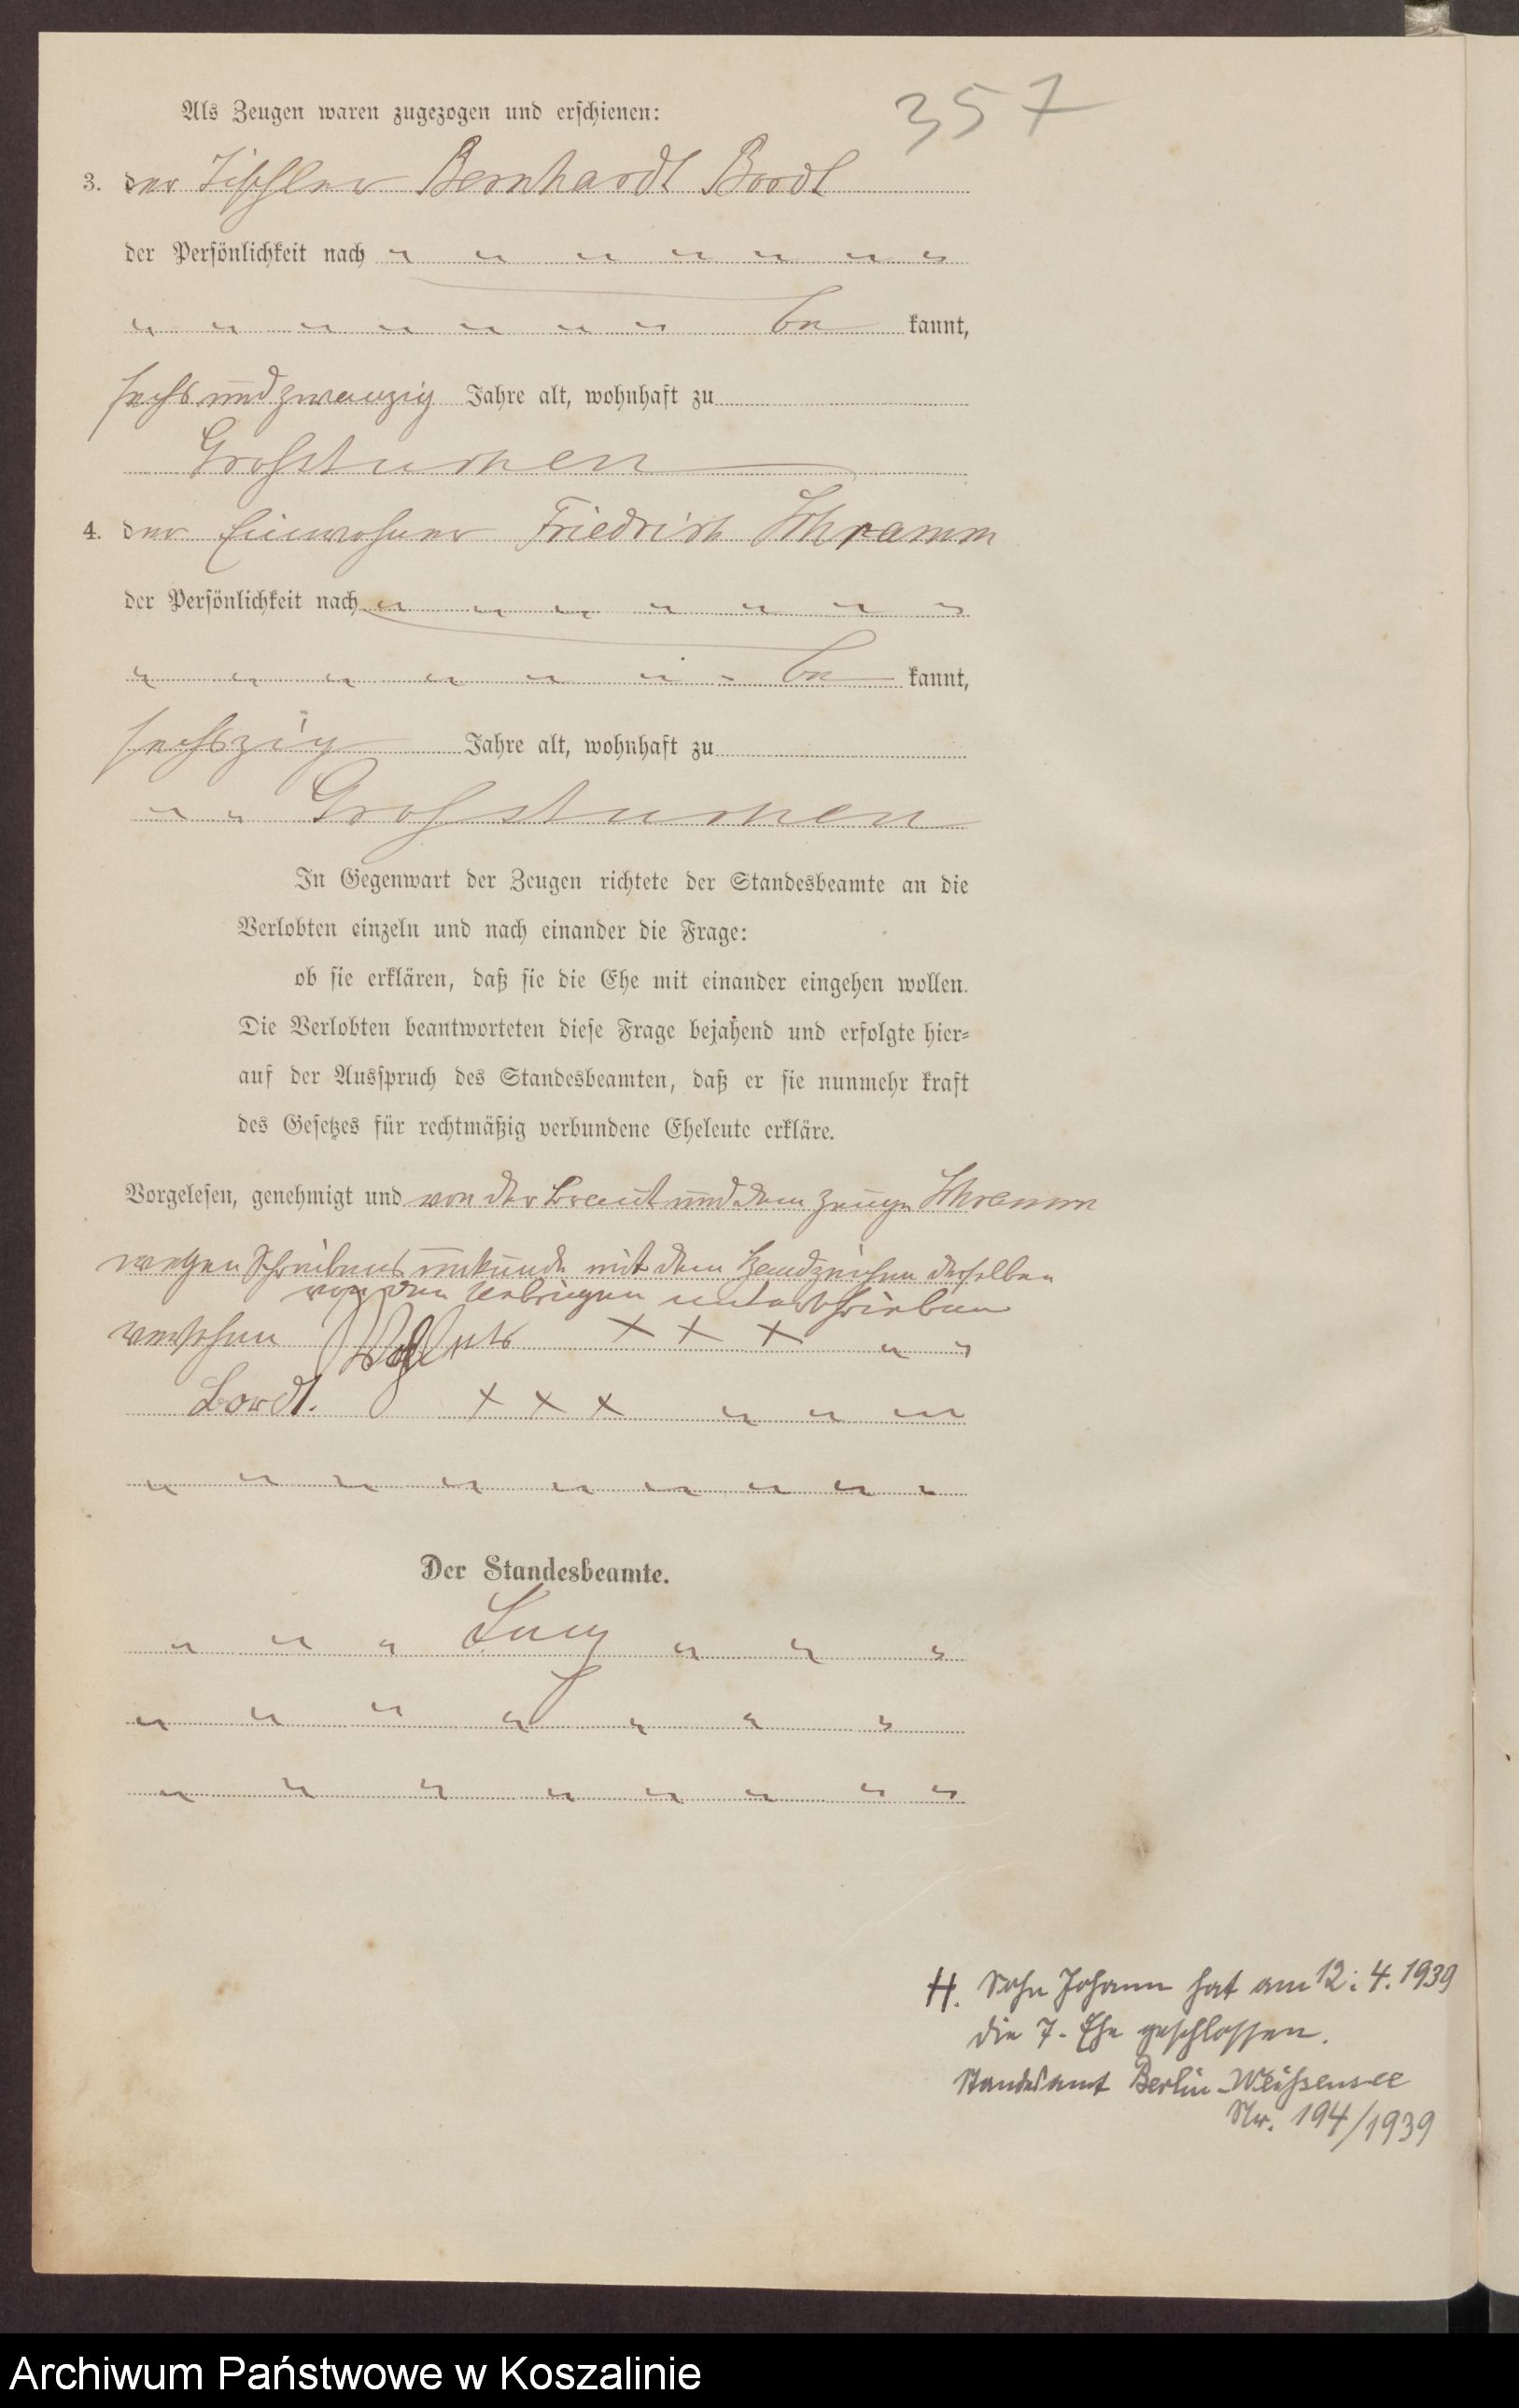 357
Als Zeugen waren zugezogen und erschienen:
3. der Tischler Bernhardt Bordt
der Persönlichkeit nach
be kannt,
sechsundzwanzig Jahre alt, wohnhaft zu
Großtuchen
4. der Einwohner Friedrich Schramm
der Persönlichkeit nach
be kannt,
sechszig Jahre alt, wohnhaft zu
Großtuchen
In Gegenwart der Zeugen richtete der Standesbeamte an die
Verlobten einzeln und nach einander die Frage:
ob sie erklären, daß sie die Ehe mit einander eingehen wollen.
Die Verlobten beantworteten diese Frage bejahend und erfolgte hier=
auf der Ausspruch des Standesbeamten, daß er sie nunmehr kraft
des Gesetzes für rechtmäßig verbundene Eheleute erkläre.
Vorgelesen, genehmigt und von der Braut und dem Zeugen Schramm
wegen Schreibens unkunde mit dem Handzeichen derselben
von den Uebrigen unterschrieben
versehen + + +
Bordt. + + +
Der Standesbeamte.
H. Sohn Johann hat am 12. 4. 1939
die 7. Ehe geschlossen.
Standesamt Berlin-Weißensee
Nr. 194/1939
Archiwum Państwowe w Koszalinie